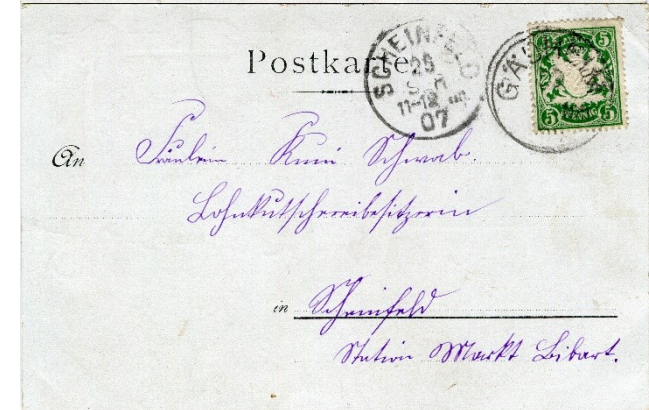 Postkarte
SCHEINFELD
25
11-12
07
5 5
5 PFENNIG 5
An Fräulein Kuni Schwab.
Lohnkutschereibesitzerin
in Scheinfeld
Station Markt Bibart.